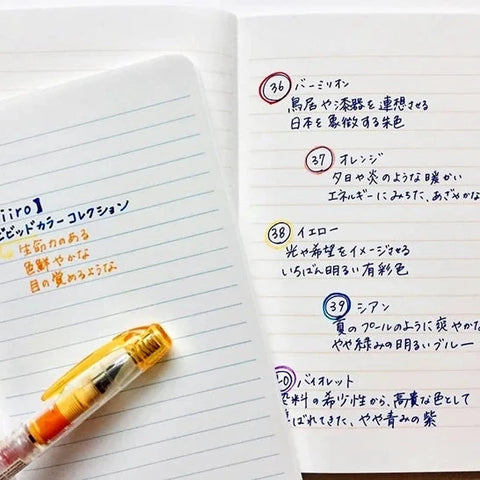 iiro】
ビビッドカラーコレクション
生命力のある
色鮮やかな
目の覚めるような
36 バーミリオン
鳥居や漆器を連想させる
日本を象徴する朱色
37 オレンジ
夕日や炎のような暖かい
エネルギーにみちた、あざやかな
38 イエロー
光や希望をイメージさせる
いちばん明るい有彩色
39 シアン
夏のプールのように爽やかな
やや緑みの明るいブルー
40 バイオレット
染料の希少性から、高貴な色として
ばれてきた、やや青みの紫